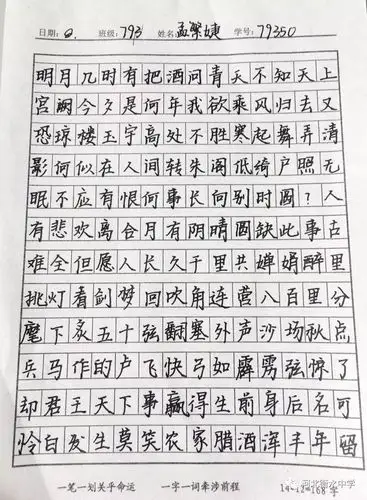 日期: 班级:793 姓名:孟繁婕 学号:79350
明月几时有把酒问青天不知天上
宫阙今夕是何年我欲乘风归去又
恐琼楼玉宇高处不胜寒起舞弄清
影何似在人间转朱阁低绮户照无
眠不应有恨何事长向别时圆?人
有悲欢离合月有阴晴圆缺此事古
难全但愿人长久千里共婵娟醉里
挑灯看剑梦回吹角连营八百里分
麾下炙五十弦翻塞外声沙场秋点
兵马作的卢飞快弓如霹雳弦惊了
却君王天下事赢得生前身后名可
怜白发生莫笑农家腊酒浑丰年留
一笔一划关乎命运 一字一词牵涉前程 14×12=168字
河北衡水中学